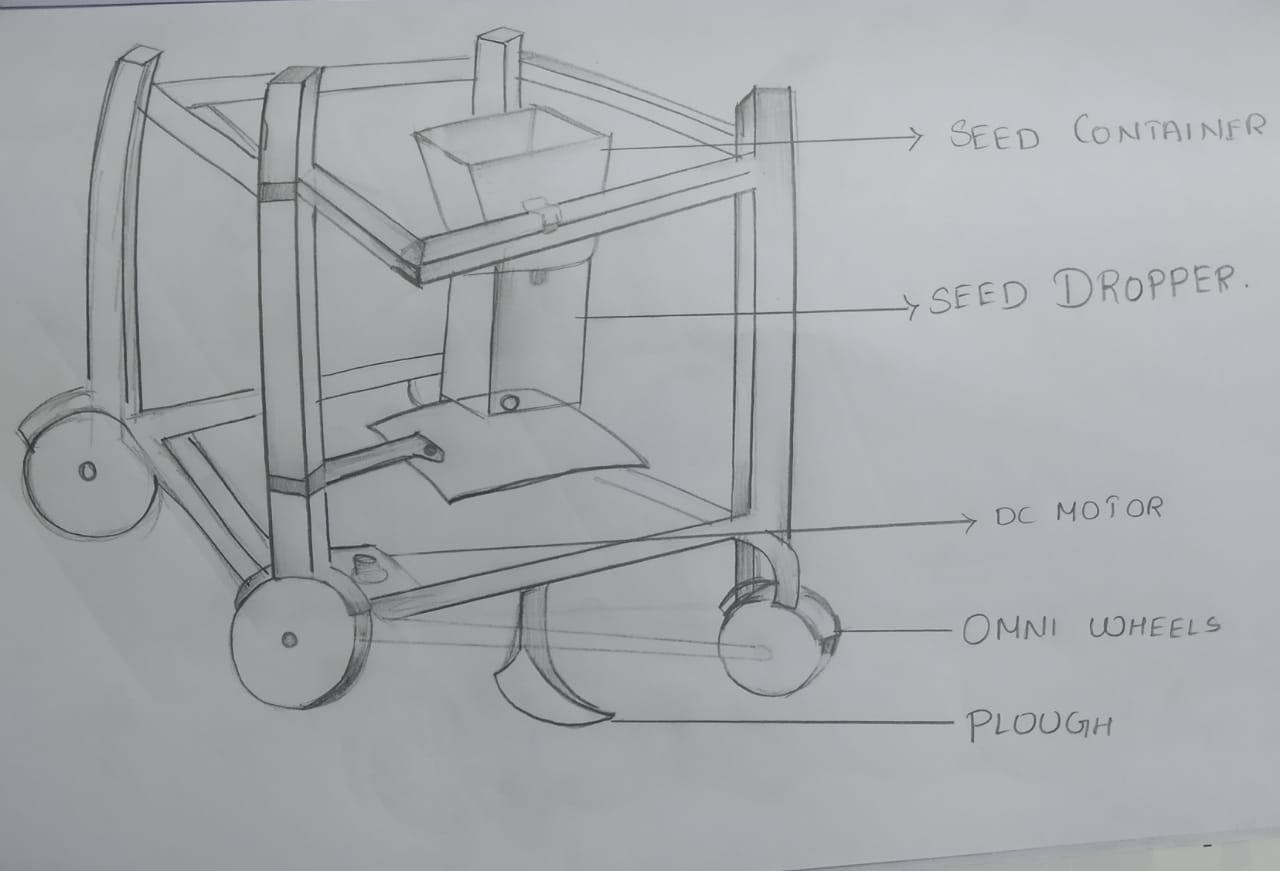 SEED CONTAINER
SEED DROPPER.
DC MOTOR
OMNI WHEELS
PLOUGH